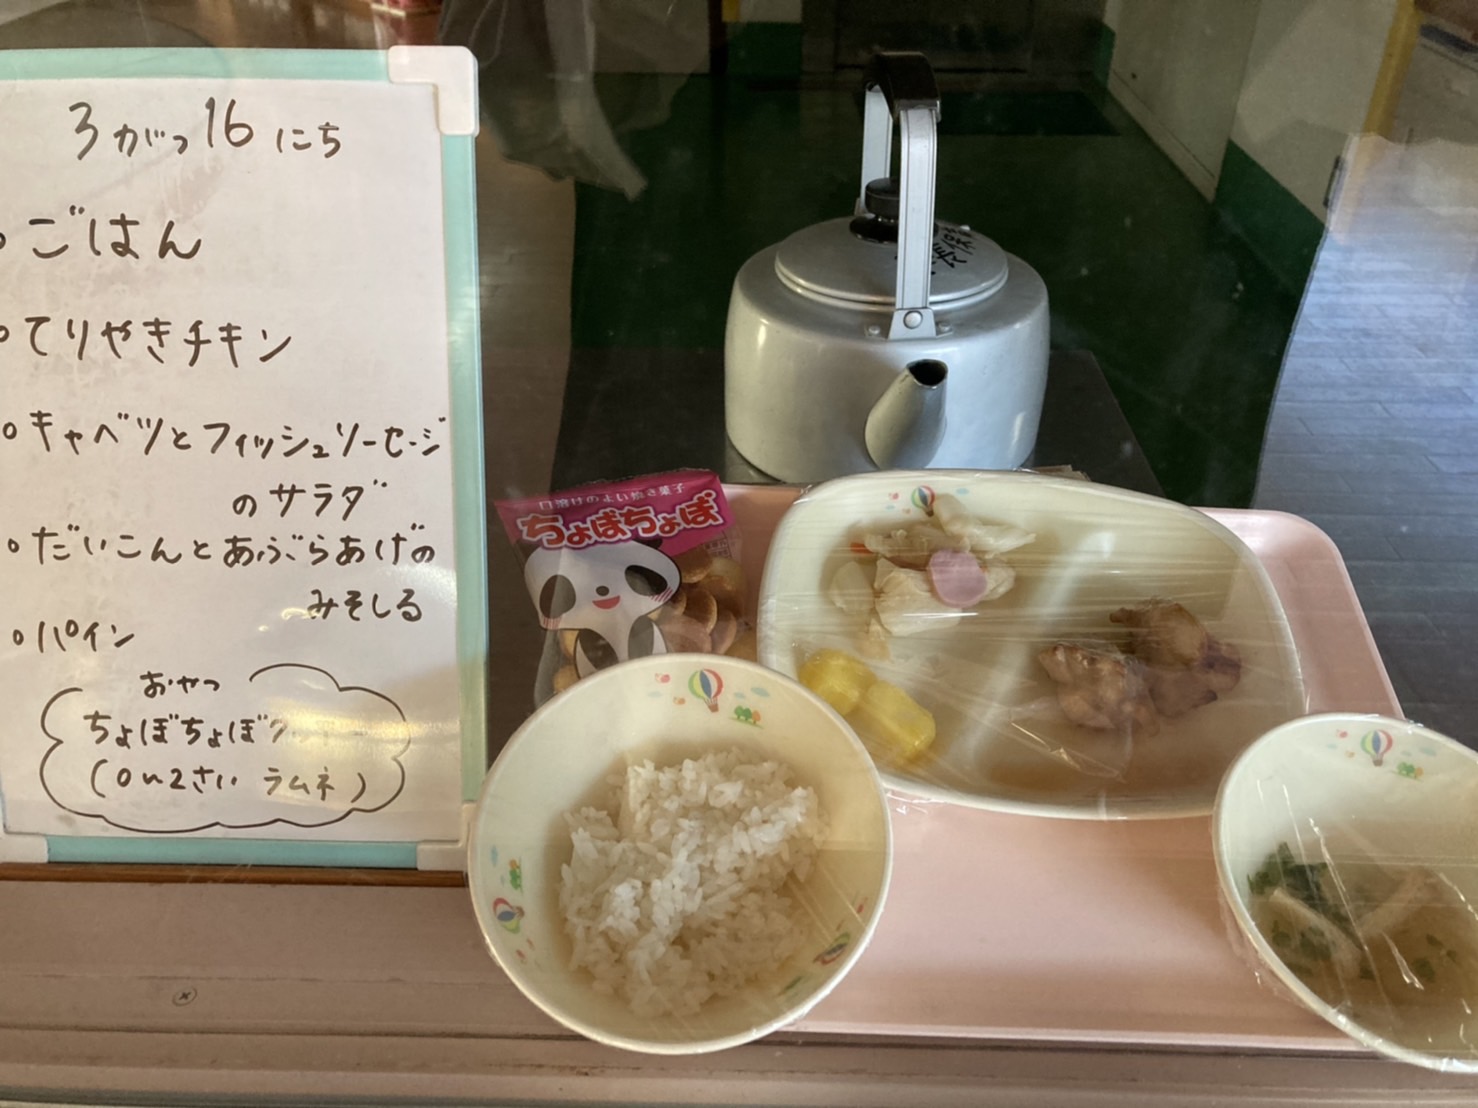 3がつ16にち
○ごはん
○てりやきチキン
○キャベツとフィッシュソーセージ
のサラダ
○だいこんとあぶらあげの
みそしる
○パイン
おやつ
ちょぼちょぼ
(0〜2さい ラムネ)
口溶けのよい焼き菓子
ちょぼちょぼ